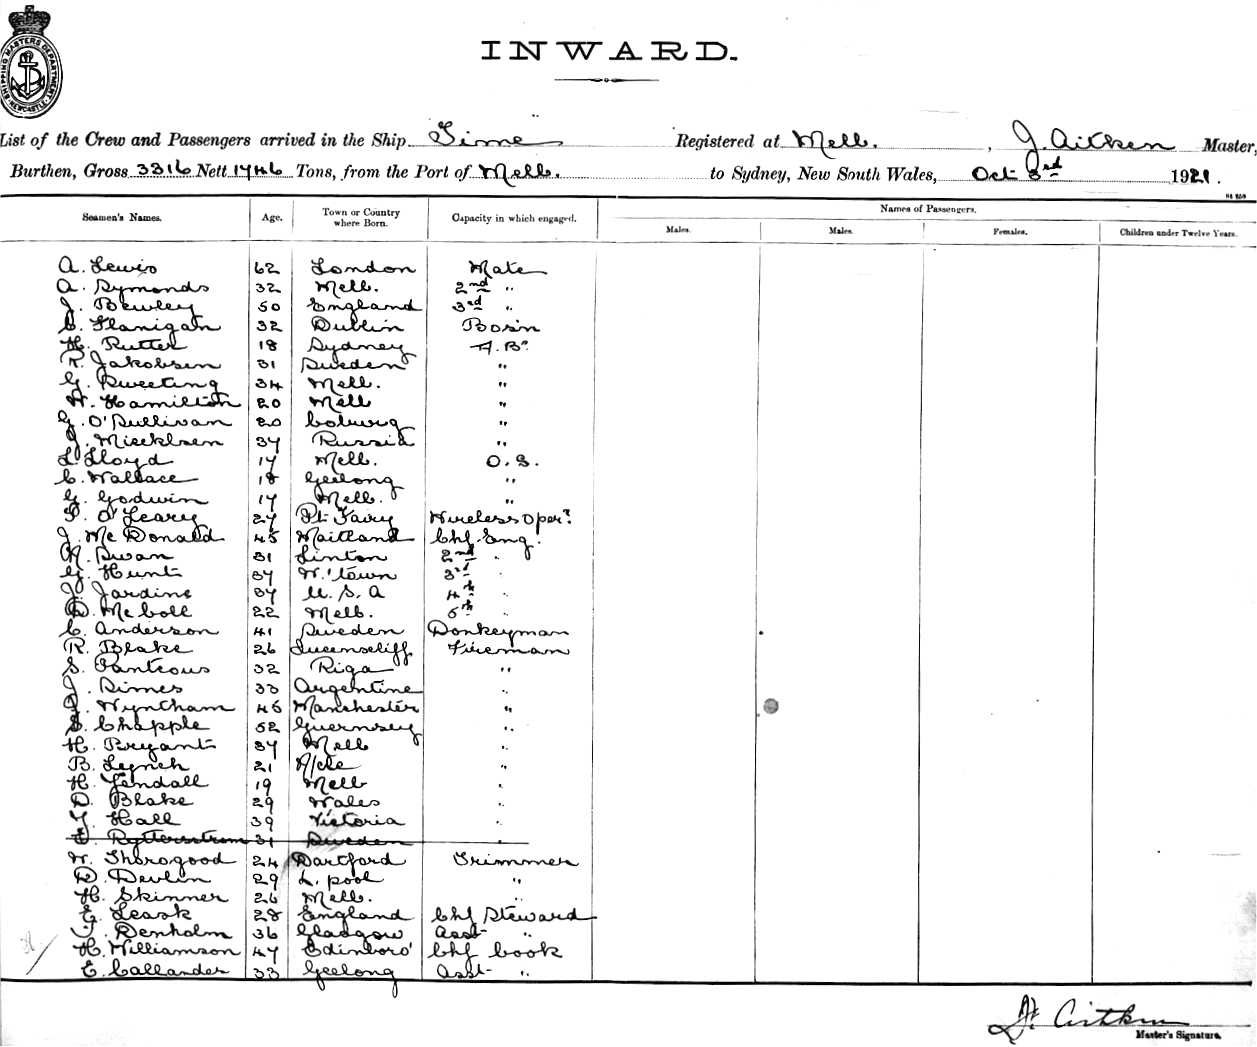 SHIPPING MASTERS DEPARTMENT NEWCASTLE
INWARD.
List of the Crew and Passengers arrived in the Ship Time Registered at Melb. , J. Aitken Master,
Burthen, Gross 3316 Nett 1746 Tons, from the Port of Melb. to Sydney, New South Wales, Oct 3rd 1921.
Seamen's Names. Age. Town or Country where Born. Capacity in which engaged. Names of Passengers.
Males. Males. Females. Children under Twelve Years.
A. Lewis 62 London Mate
A. Symonds 32 Melb. 2nd "
J. Bewley 50 England 3rd "
C. Flanigan 32 Dublin Bosin
H. Rutter 18 Sydney A.B.
R. Jakobsen 31 Sweden "
G. Sweeting 34 Melb. "
W. Hamilton 20 Melb "
G. O'Sullivan 20 Coburg "
J. Miecklsen 37 Russia "
L. Lloyd 17 Melb. O.S.
C. Wallace 18 Geelong "
G. Godwin 17 Melb. "
O'Leary 27 Pt Fairy Wireless Oper.
J. McDonald 45 Maitland Chf. Eng.
N. Swan 31 Linton 2nd "
G. Hunt 37 W.'town 3rd "
J. Jardine 37 U.S.A 4th "
D. McColl 22 Melb. 5th "
C. Anderson 41 Sweden Donkeyman
R. Blake 26 Queenscliff Fireman
S. Panteous 32 Riga "
J. Simes 33 Argentine "
Wyntham 46 Manchester "
S. Chapple 52 Guernsey "
H. Bryant 37 Melb "
B. Lynch 21 "
H. Fendall 19 Melb "
D. Blake 29 Wales "
Hall 39 Victoria "
E. Rytterstrom 31 Sweden "
W. Thorogood 24 Dartford Trimmer
D. Devlin 29 L.pool "
H. Skinner 26 Melb. "
E. Leask 28 England Chf Steward
Denholm 36 Glasgow Asst "
H. Williamson 47 Edinboro' Chf Cook
E. Callander 33 Geelong Asst "
J. Aitken
Master's Signature.